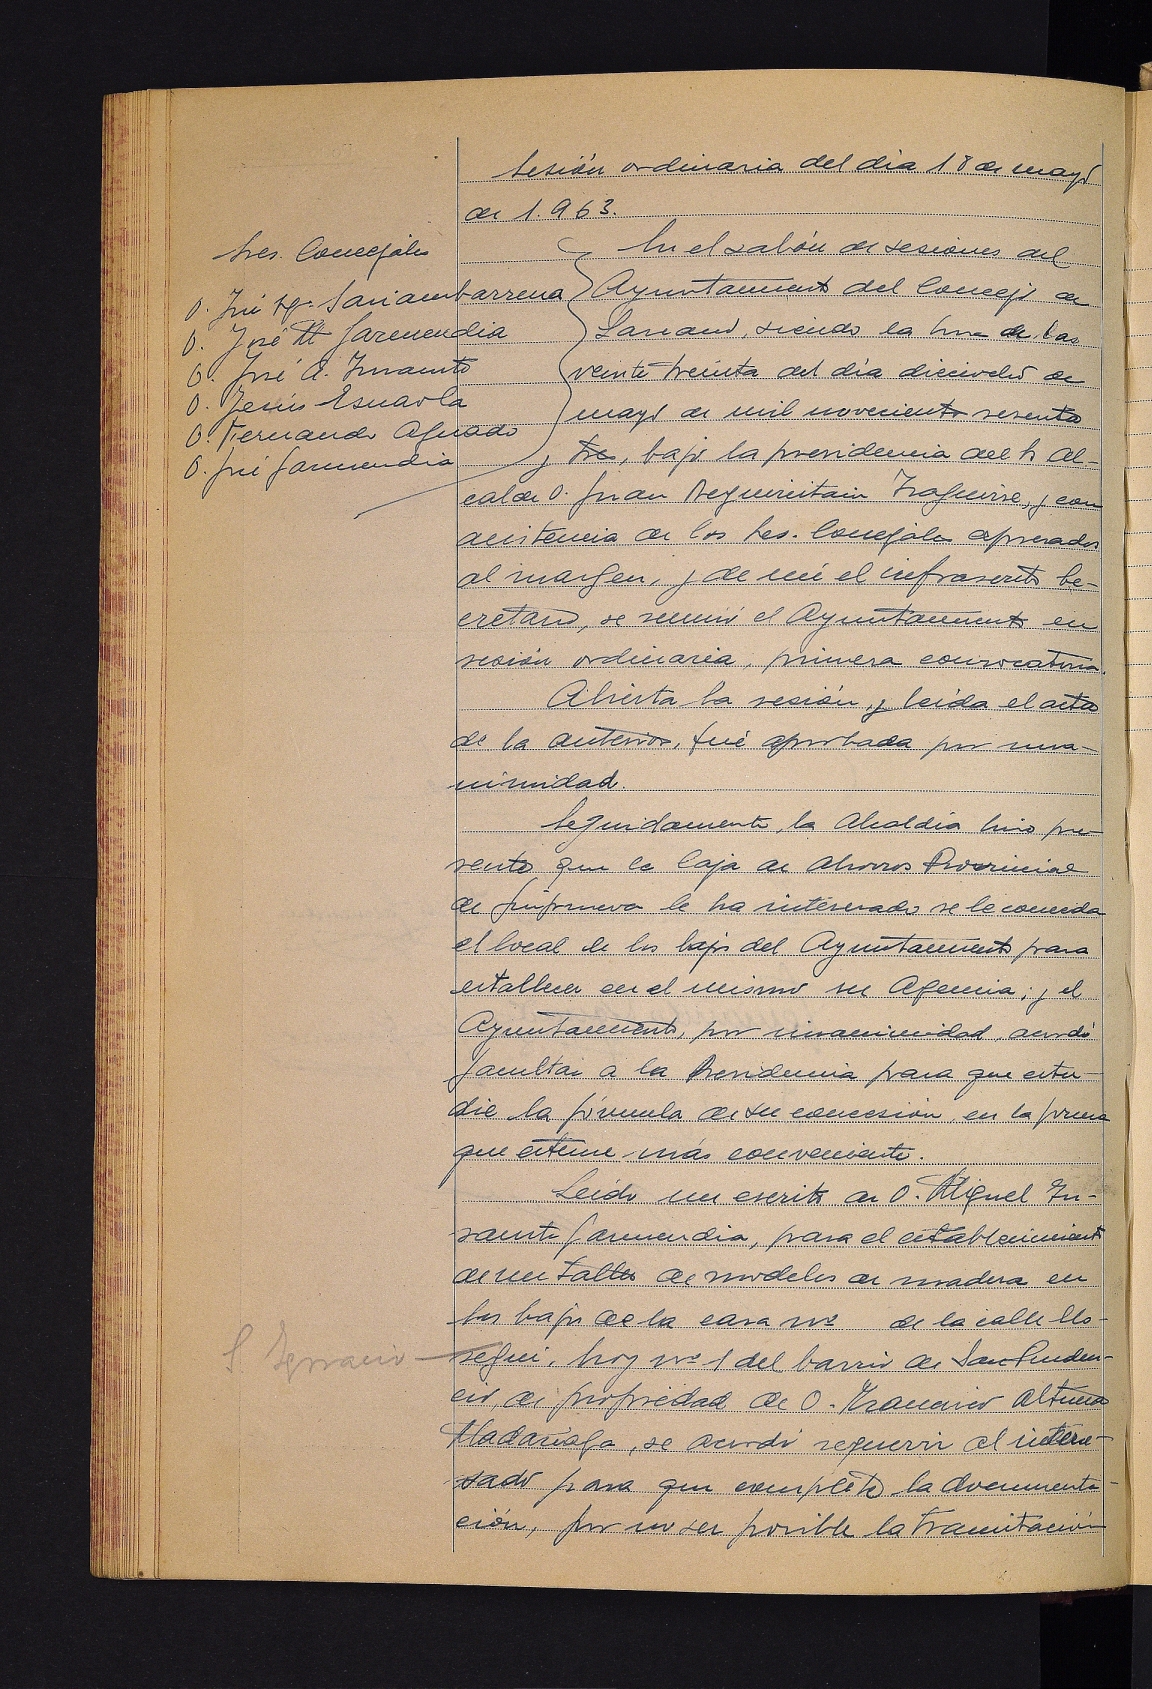 Sesión ordinaria del dia 18 de mayo
de 1.963.
Sres. Concejales
D. José Mª Sariambarrena
D. José M Garmendia
D. José A. Insausti
D. Jesús Esnaola
D. Fernando Aguado
D. José Garmendia
En el salón de sesiones del
Ayuntamiento del Concejo de
Lascano, siendo la hora de las
veinte treinta del día dieciocho de
mayo de mil novecientos sesenta
y tres, bajo la presidencia del Sr Al-
calde D. Juan Iraguirre, y con
asistencia de los Sres. Concejales expresados
al margen, y de mí el infrascrito Se-
cretario, se reunió el Ayuntamiento en
sesión ordinaria, primera convocatoria.
Abierta la sesión, y leída el acta
de la anterior, fué aprobada por una-
nimidad.
Seguidamente, la Alcaldía hizo pre-
sente que la Caja de Ahorros Provincial
de Guipuzcoa le ha interesado se le conceda
el local de los bajos del Ayuntamiento para
establecer en el mismo su Agencia; y el
Ayuntamiento, por unanimidad, acordó
facultar a la Presidencia para que estu-
die la fórmula de su concesión, en la forma
que estime más conveniente.
Leido un escrito de D. Miguel In-
sausti Garmendia, para el establecimiento
de un taller de modelos de madera en
los bajos de la casa nº de la calle Uo-
S Ignacio
segui, hoy nº 1 del barrio de San Pruden-
cio, de propiedad de D. Francisco Altuna
Madariaga, se acordó requerir al intere-
sado para que complete la documenta-
ción, por no ser posible la tramitación